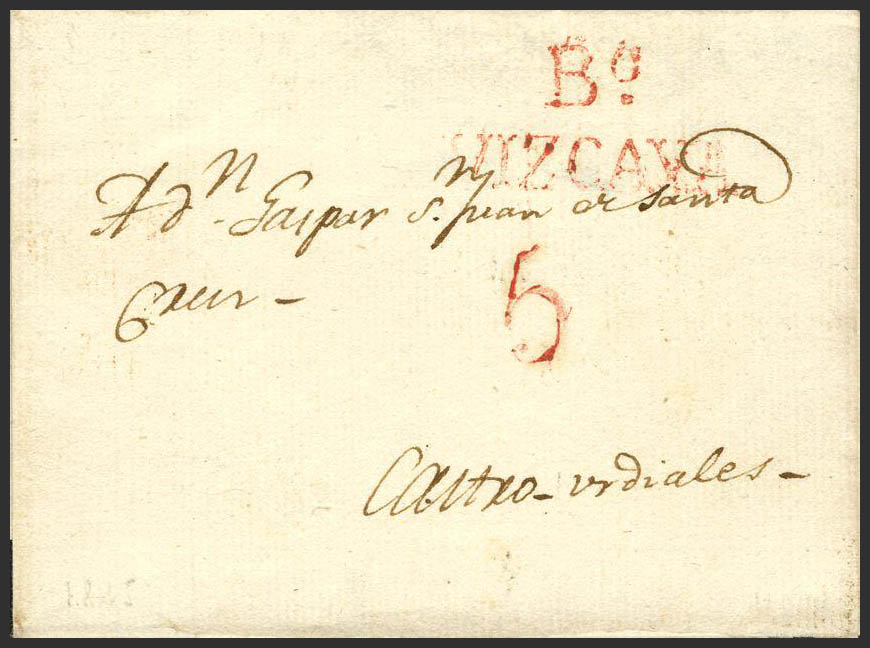 Bº.
VIZCAYA
A dⁿ. Gaspar Sⁿ. Juan de Santa
Cruz –
5
Castro – urdiales –